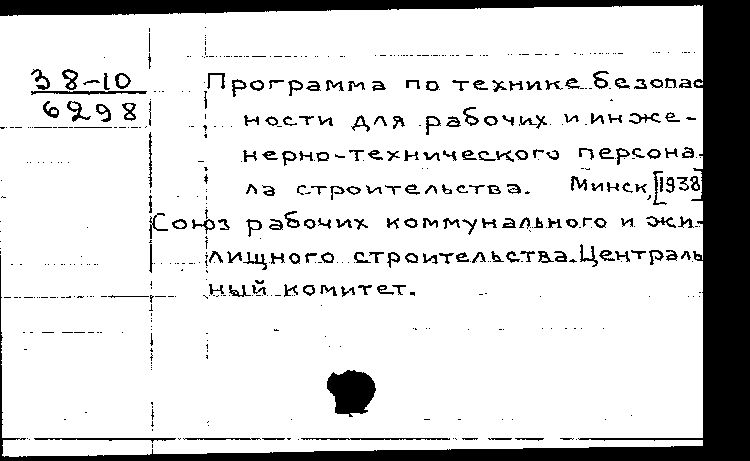 38-10
6298
Программа по технике безопас
ности для рабочих и инже-
нерно-технического персона-
ла строительства. Минск, [1938]
Союз рабочих коммунального и жи-
лищного строительства. Централь
ный комитет.